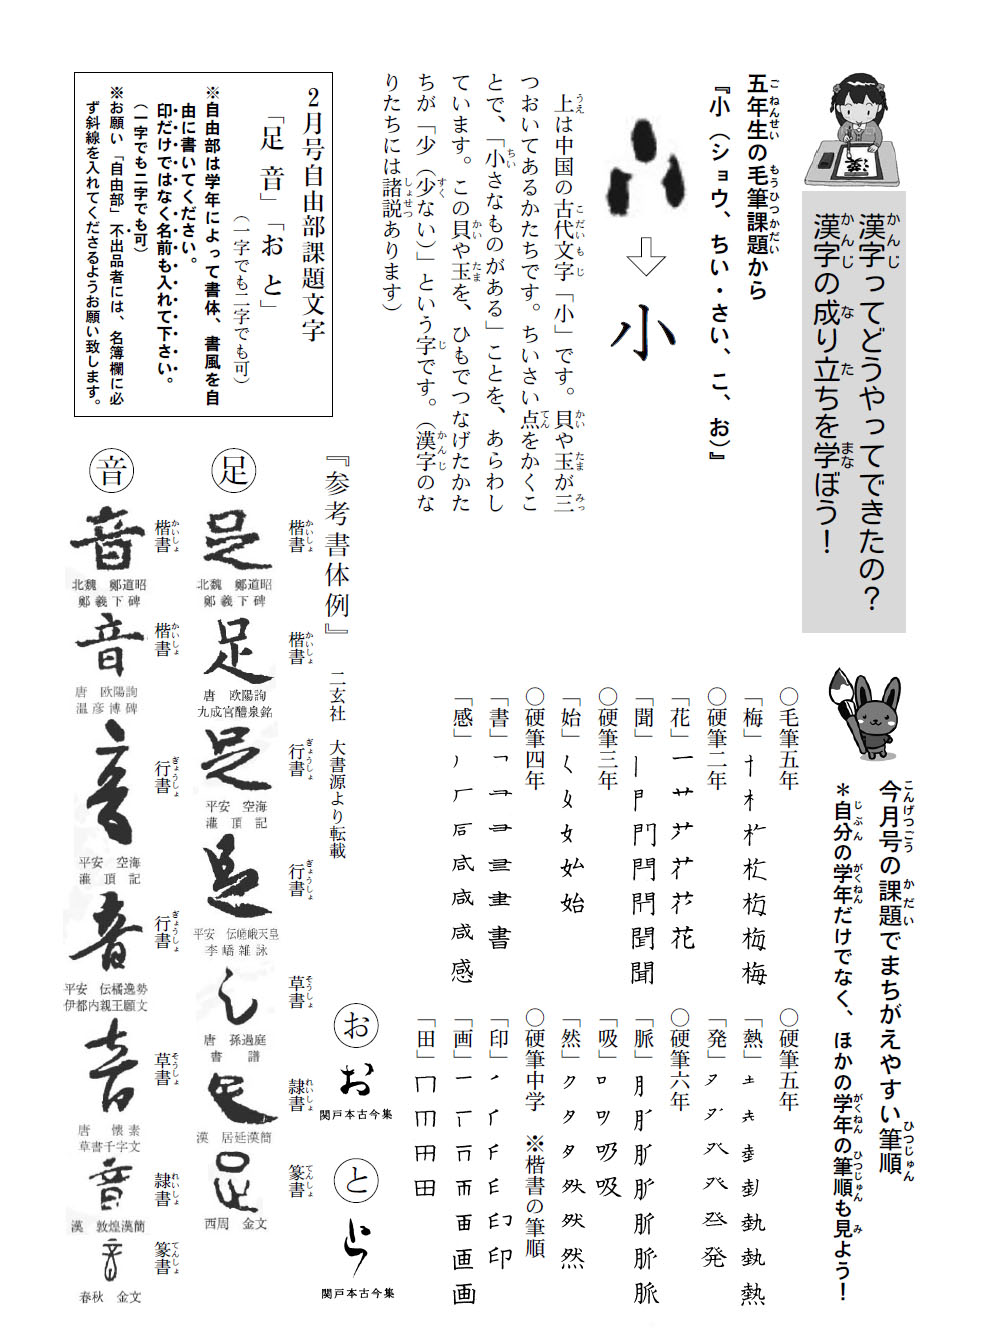 漢字ってどうやってできたの？
漢字の成り立ちを学ぼう！
五年生の毛筆課題から
『小（ショウ、ちい・さい、こ、お）』
小
上は中国の古代文字「小」です。貝や玉が三
つおいてあるかたちです。ちいさい点をかくこ
とで、「小さなものがある」ことを、あらわし
ています。この貝や玉を、ひもでつなげたかた
ちが「少（少ない）」という字です。（漢字のな
りたちには諸説あります）
2月号自由部課題文字
「足 音」「お と」
（一字でも二字でも可）
※自由部は学年によって書体、書風を自
由に書いてください。
印だけではなく名前も入れて下さい。
（一字でも二字でも可）
※お願い「自由部」不出品者には、名簿欄に必
ず斜線を入れてくださるようお願い致します。
今月号の課題でまちがえやすい筆順
＊自分の学年だけでなく、ほかの学年の筆順も見よう！
○毛筆五年
「梅」
○硬筆二年
「花」
「聞」
○硬筆三年
「始」
○硬筆四年
「書」
「感」
○硬筆五年
「熱」
「発」
○硬筆六年
「脈」
「吸」
「然」
○硬筆中学 ※楷書の筆順
「印」
「画」
「田」
『参考書体例』 二玄社 大書源より転載
足
楷書
足
北魏 鄭道昭
鄭羲下碑
楷書
足
唐 欧陽詢
九成宮醴泉銘
行書
足
平安 空海
灌頂記
行書
足
平安 伝嵯峨天皇
李嶠雑詠
草書
足
唐 孫過庭
書譜
隷書
足
漢 居延漢簡
篆書
足
西周 金文
音
楷書
音
北魏 鄭道昭
鄭羲下碑
楷書
音
唐 欧陽詢
温彦博碑
行書
音
平安 空海
灌頂記
行書
音
平安 伝橘逸勢
伊都内親王願文
草書
音
唐 懐素
草書千字文
隷書
音
漢 敦煌漢簡
篆書
音
春秋 金文
お
お
関戸本古今集
と
と
関戸本古今集